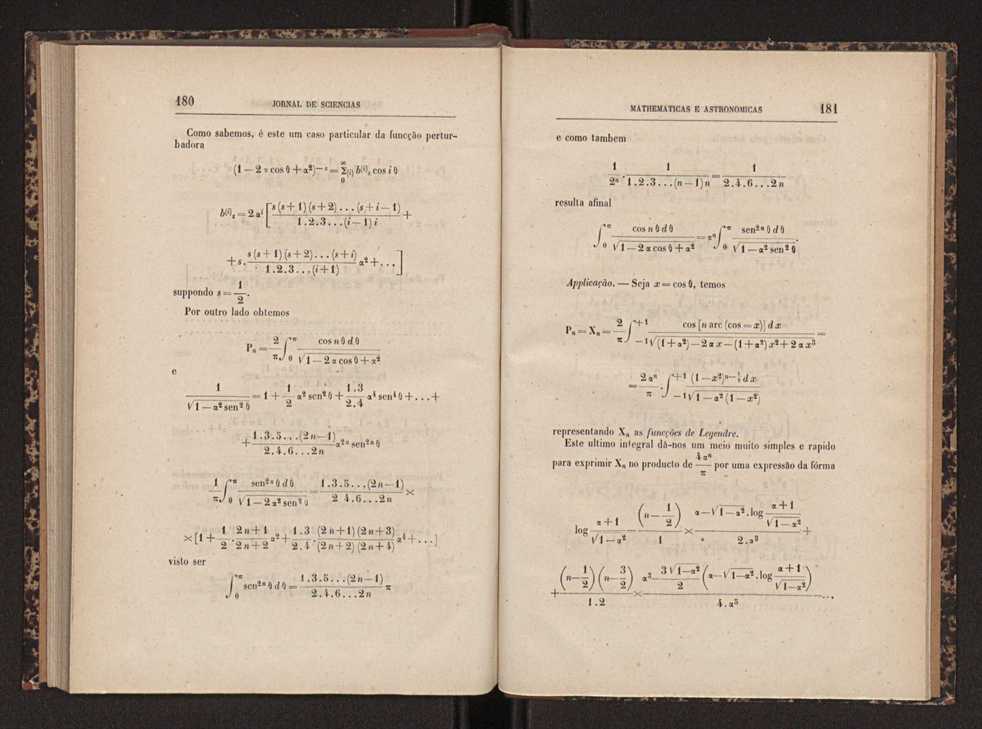 180 JORNAL DE SCIENCIAS
Como sabemos, é este um caso particular da funcção pertur-
badora
(1 — 2 α cos θ + α²)^{—s} = Σ_{(i)}_{0}^{∞} b^{(i)}_s cos i θ
b^{(i)}_s = 2 α^i [ s (s + 1) (s + 2) . . . (s + i — 1) / 1 . 2 . 3 . . . (i — 1) i +
+ s . s (s + 1) (s + 2) . . . (s + i) / 1 . 2 . 3 . . . (i + 1) α² + . . . ]
suppondo s = 1/2 .
Por outro lado obtemos
P_n = 2/π ∫_0^π cos n θ d θ / √1 — 2 α cos θ + α²
e
1 / √1 — α² sen² θ = 1 + 1/2 α² sen² θ + 1 . 3 / 2 . 4 α⁴ sen⁴ θ + . . . +
+ 1 . 3 . 5 . . . (2 n — 1) / 2 . 4 . 6 . . . 2n α^{2n} sen^{2n} θ
1/π ∫_0^π sen^{2n} θ d θ / √1 — 2 α² sen² θ = 1 . 3 . 5 . . . (2 n — 1) / 2 4 . 6 . . . 2n ×
× [1 + 1/2 . 2 n + 1 / 2 n + 2 α² + 1 . 3 / 2 . 4 . (2 n + 1) (2 n + 3) / (2 n + 2) (2 n + 4) α⁴ + . . . ]
visto ser
∫_0^π sen^{2n} θ d θ = 1 . 3 . 5 . . . (2n — 1) / 2 . 4 . 6 . . . 2n π
MATHEMATICAS E ASTRONOMICAS 181
e como tambem
1/2^n . 1 / 1 . 2 . 3 . . . (n — 1) n = 1 / 2 . 4 . 6 . . . 2 n
resulta afinal
∫_0^π cos n θ d θ / √1 — 2 α cos θ + α² = α^n ∫_0^π sen^{2n} θ d θ / √1 — α² sen² θ .
Applicação. — Seja x = cos θ, temos
P_n = X_n = 2/π ∫_{—1}^{+1} cos [n arc (cos = x)] d x / √(1 + α²) — 2 α x — (1 + α²) x² + 2 α x³ =
= 2 α^n / π . ∫_{—1}^{+1} (1 — x²)^{n — 1/2} d x / √1 — α² (1 — x²)
representando X_n as funcções de Legendre.
Este ultimo integral dá-nos um meio muito simples e rapido
para exprimir X_n no producto de 4 α^n / π por uma expressão da fórma
log α + 1 / √1 — α² — (n — 1/2) / 1 × α — √1 — α² . log α + 1 / √1 — α² / 2 . α³ +
+ (n — 1/2) (n — 3/2) / 1 . 2 × α² — 3 √1 — α² / 2 (α — √1 — α² . log α + 1 / √1 — α²) / 4 . α⁵ . . .